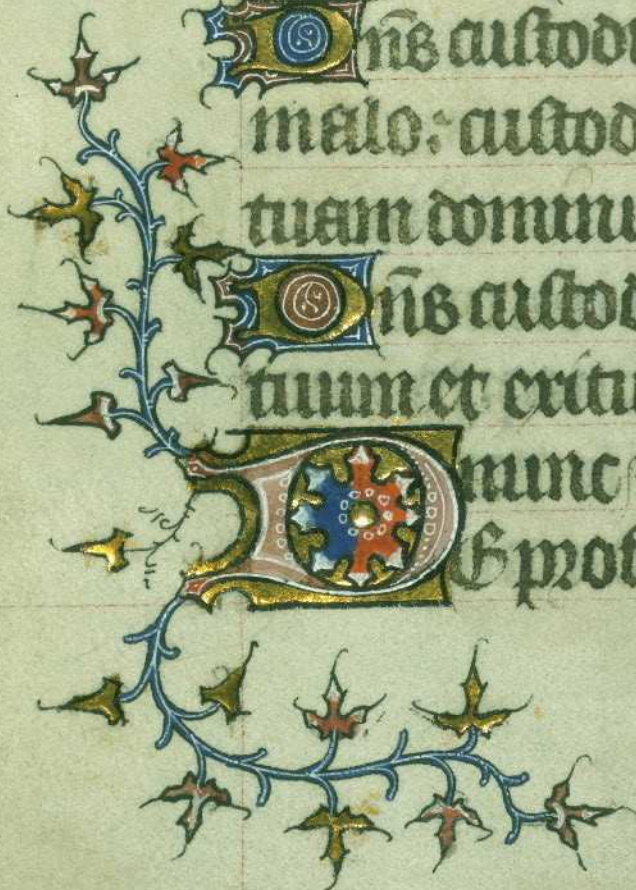 Dn̄s custodi
malo: custod
tuam dominu
Dn̄s custod
tuum et exitu
D nunc
E prob